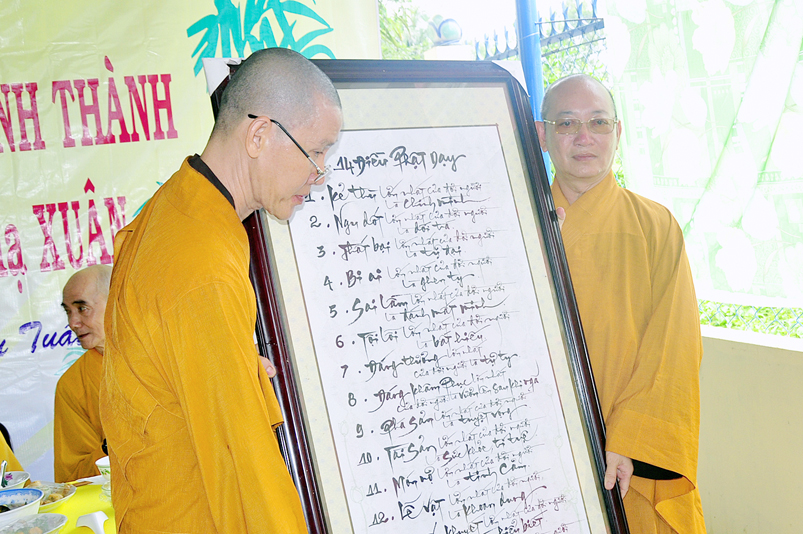 NH THÀNH
ạ XUÂN
Tuấ
14 Điều Phật Dạy
1. Kẻ thù lớn nhất của đời người
là chính mình
2. Ngu dốt lớn nhất của đời người
là dối trá
3. Thất bại lớn nhất của đời người
là tự đại
4. Bi ai lớn nhất của đời người
là ghen tỵ
5. Sai lầm lớn nhất của đời người
là đánh mất mình
6. Tội lỗi lớn nhất của đời người
là bất hiếu
7. Đáng thương lớn nhất
của đời người là tự ty
8. Đáng khâm phục lớn nhất
của đời người là vươn lên sau khi ngã
9. Phá sản lớn nhất của đời người
là tuyệt vọng
10. Tài sản lớn nhất của đời người
là sức khỏe trí tuệ
11. Món nợ lớn nhất của đời người
là tình cảm
12. Lễ vật lớn nhất của đời người
là khoan dung
khuyết lớn nhất của đời người
là hiểu biết